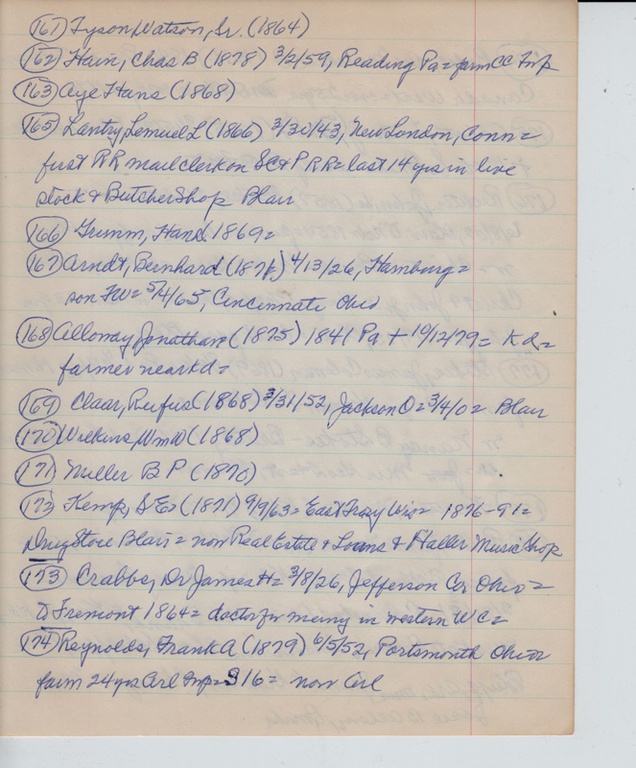 (161) Tyson, Watson, Sr. (1864)
(162) Hain, Chas B (1878) 3/2/59, Reading Pa = farm CC Tnp
(163) Aye Hans (1868)
(165) Lantry, Lemuel L (1866) 3/30/43, New London, Conn =
first RR mail clerk on SC & P RR = last 14 yrs in live
stock & Butcher Shop Blair
(166) Grimm, Hans 1869 =
(167) Arndt, Bernhard (187) 4/13/26, Hamburg =
son FW = 5/4/65, Cincinnate Ohio
(168) Alloway, Jonathan (1875) 1841 Pa + 10/12/79 = Kd =
farmer near Kd =
(169) Claar, Rufus (1868) 3/31/52, Jackson O = 3/4/0 = Blair
(170) Wilkins, Wm W (1868)
(171) Miller B P (1870)
(172) Kemp, S E (1871) 9/9/63 = East Troy Wis = 1876-91 =
Drug Store Blair = now Real Estate & Loans & Haller Music Shop
(173) Crabbs, Dr James H = 3/8/26, Jefferson Co, Ohio =
D Fremont 1864 = doctor for many in western WC =
(174) Reynolds, Frank A (1879) 6/5/52, Portsmouth Ohio =
farm 24 yrs Arl Tnp = S16 = now Arl